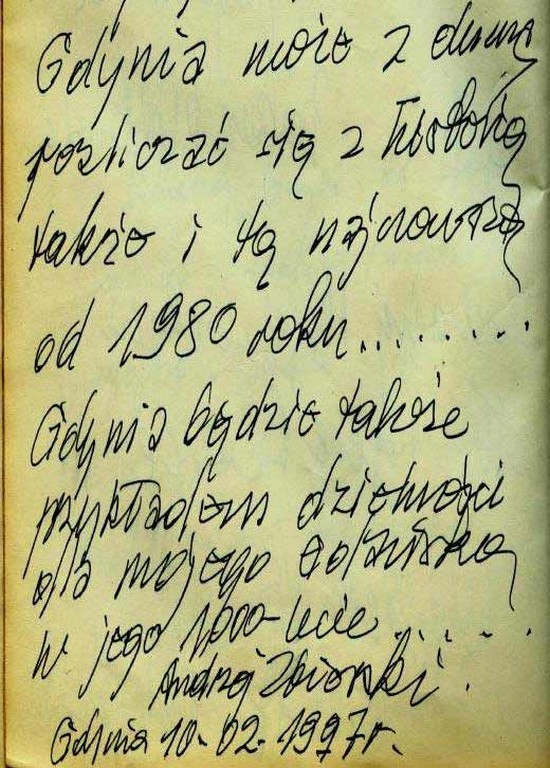 Gdynia może z dumą
rozliczać się z historią
także i tą najnowszą
od 1980 roku........
Gdynia będzie także
przykładem dzielności
dla mojego
w jego 1000-lecie .....
Andrzej
Gdynia 10-02-1997r.